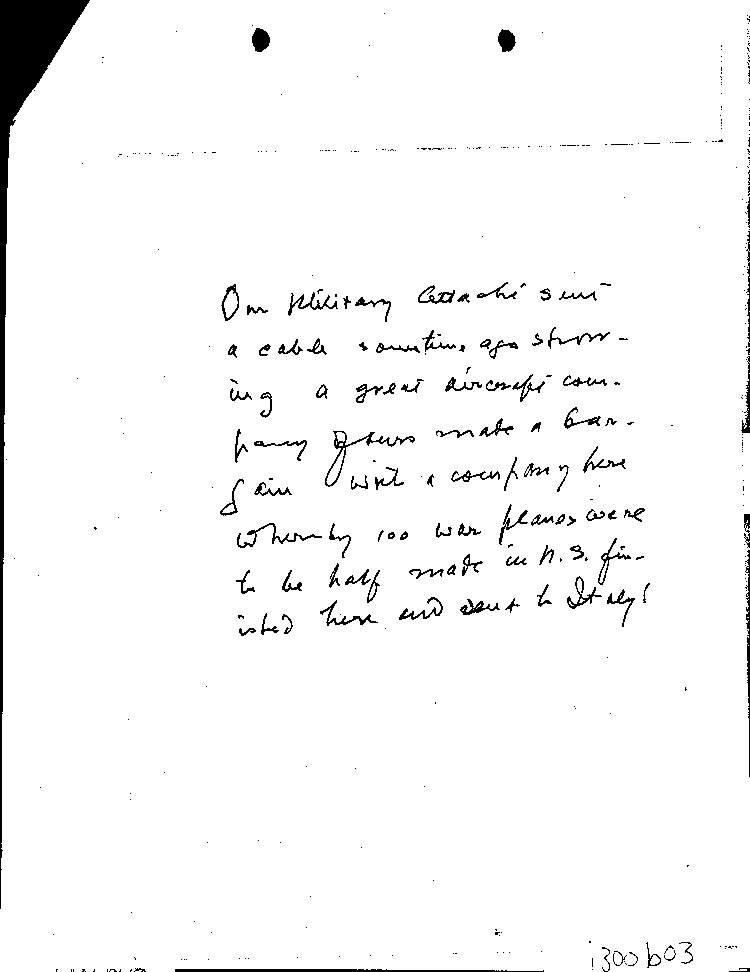 Our Military Attaché sent
a cable sometime ago show-
ing a great aircraft com-
pany of ours made a bar-
gain with a company here
whereby 100 war planes were
to be half made in U.S. fin-
ished here and sent to Italy!
i300b03